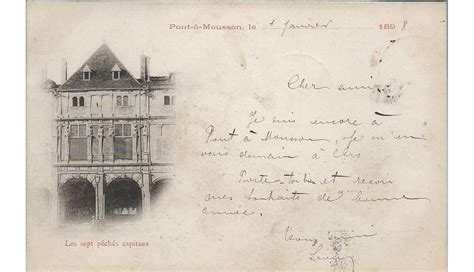 Pont-à-Mousson, le 1 Janvier 1898
Cher ami
Je suis encore à
Pont à Mousson, je m'en
vais demain à
Porte-toi bien et reçois
mes souhaits de bonne
année.
Ton ami
Les sept péchés capitaux